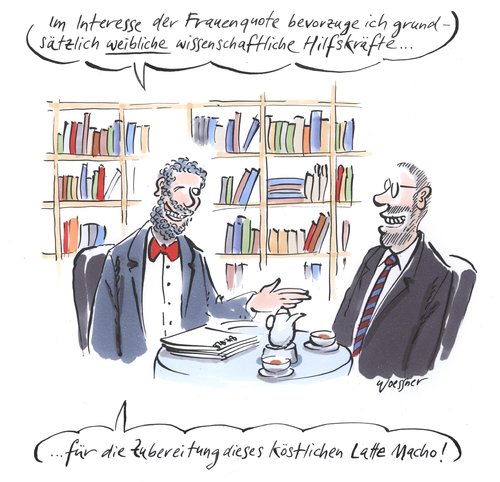 Im Interesse der Frauenquote bevorzuge ich grund-
sätzlich weibliche wissenschaftliche Hilfskräfte...
Woessner
...für die Zubereitung dieses köstlichen Latte Macho!